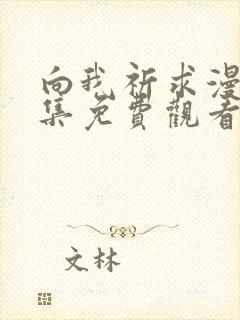 向我祈求漫
集免費觀看
文林